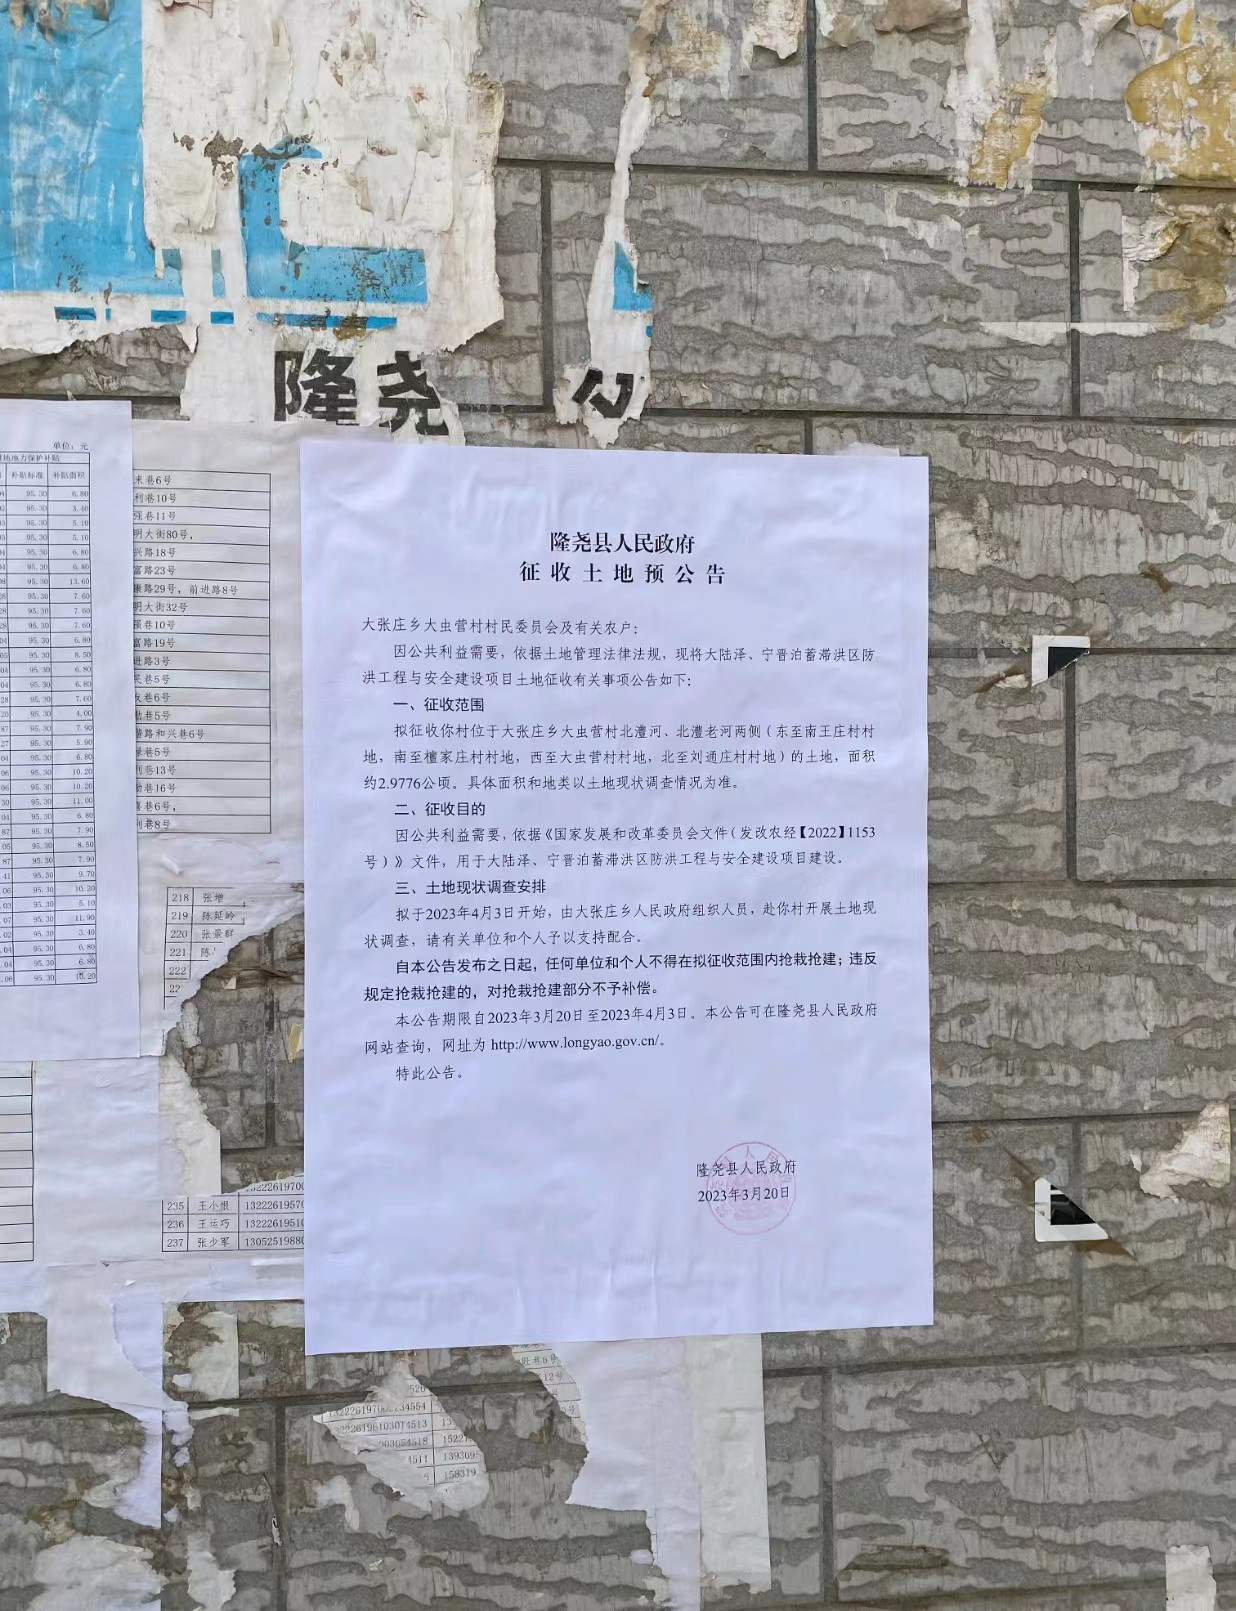 隆尧
单位：元
耕地地力保护补贴
补贴标准 补贴面积
95.30 6.80
95.30 3.40
95.30 5.10
95.30 5.10
95.30 6.80
95.30 6.80
95.30 13.60
95.30 7.60
95.30 7.60
95.30 7.60
95.30 6.80
95.30 8.50
95.30 6.80
95.30 6.80
95.30 7.60
95.30 4.00
95.30 7.90
95.30 5.90
95.30 6.80
95.30 10.20
95.30 10.20
95.30 11.00
95.30 6.80
95.30 7.90
95.30 8.50
95.30 7.90
95.30 9.70
95.30 10.20
95.30 5.10
95.30 11.90
95.30 3.40
95.30 6.80
95.30 6.80
95.30 10.20
巷6号
利巷10号
强巷11号
明大街80号，
兴路18号
富路23号
康路29号，前进路8号
明大街32号
强巷10号
富路19号
进路3号
巷5号
巷6号
巷5号
路和兴巷6号
巷5号
利巷13号
巷16号
巷6号，
利巷8号
218 张增
219 陈延岭
220 张景群
221 陈
222
235 王小恨 1322261957
236 王运巧 1322261951
237 张少军 1305251988
隆尧县人民政府
征收土地预公告
大张庄乡大虫营村村民委员会及有关农户：
因公共利益需要，依据土地管理法律法规，现将大陆泽、宁晋泊蓄滞洪区防
洪工程与安全建设项目土地征收有关事项公告如下：
一、征收范围
拟征收你村位于大张庄乡大虫营村北澧河、北澧老河两侧（东至南王庄村村
地，南至檀家庄村村地，西至大虫营村村地，北至刘通庄村村地）的土地，面积
约2.9776公顷。具体面积和地类以土地现状调查情况为准。
二、征收目的
因公共利益需要，依据《国家发展和改革委员会文件（发改农经【2022】1153
号）》文件，用于大陆泽、宁晋泊蓄滞洪区防洪工程与安全建设项目建设。
三、土地现状调查安排
拟于2023年4月3日开始，由大张庄乡人民政府组织人员，赴你村开展土地现
状调查，请有关单位和个人予以支持配合。
自本公告发布之日起，任何单位和个人不得在拟征收范围内抢栽抢建；违反
规定抢栽抢建的，对抢栽抢建部分不予补偿。
本公告期限自2023年3月20日至2023年4月3日。本公告可在隆尧县人民政府
网站查询，网址为 http://www.longyao.gov.cn/。
特此公告。
隆尧县人民政府
2023年3月20日